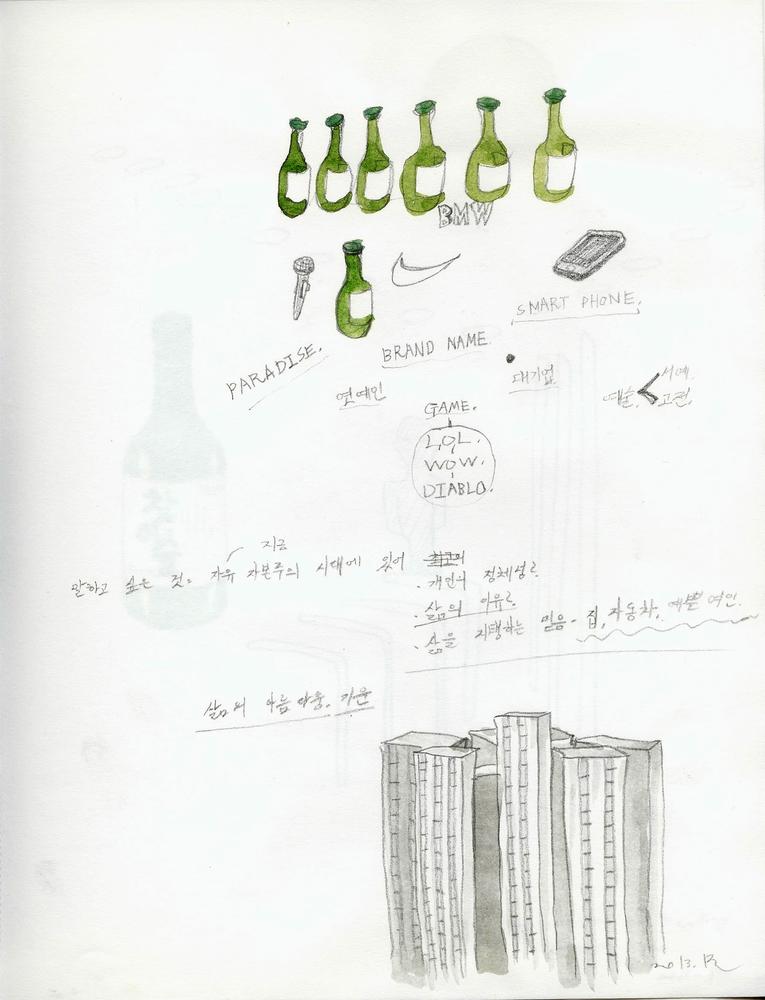 BMW
SMART PHONE.
PARADISE.
BRAND NAME
연예인
대기업
예술 < 서예
고전
GAME.
LOL.
WOW.
DIABLO.
지금
말하고 싶은 것. 자유 자본주의 시대에 있어
· 개인의 정체성?
· 삶의 이유?
· 삶을 지탱하는 믿음 - 집, 자동차, 예쁜 여인.
삶의 아름다움.
2013.